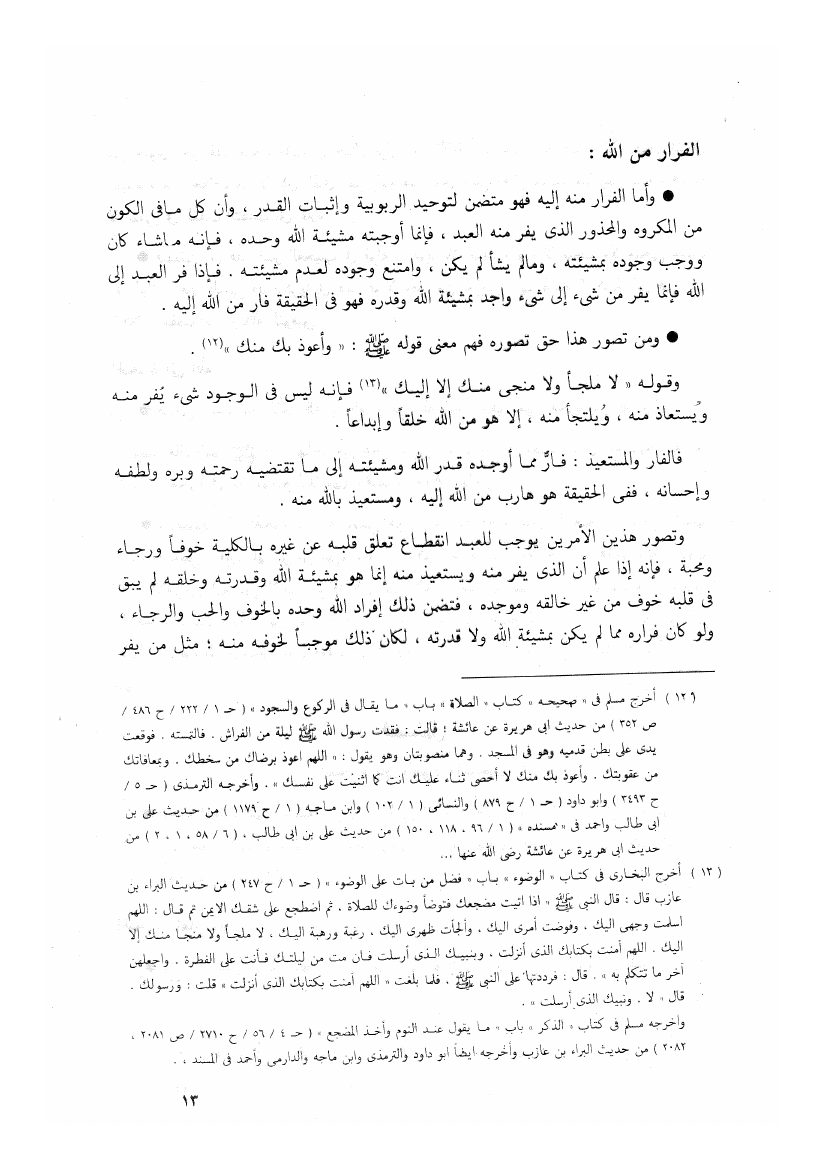 الفرار من الله :
● وأما الفرار منه إليه فهو متضمن لتوحيد الربوبية وإثبات القدر ، وأن كل مافى الكون
من المكروه والمحذور الذى يفر منه العبد ، فإنما أوجبته مشيئة الله وحده ، فإنه ماشاء كان
ووجب وجوده بمشيئته ، ومالم يشأ لم يكن ، وامتنع وجوده لعدم مشيئته . فإذا فر العبد إلى
الله فإنما يفر من شىء إلى شىء واجد بمشيئة الله وقدره فهو فى الحقيقة فار من الله إليه .
● ومن تصور هذا حق تصوره فهم معنى قوله ﷺ : « وأعوذ بك منك »(١٢) .
وقوله « لا ملجأ ولا منجى منك إلا إليك »(١٣) فإنه ليس فى الوجود شىء يُفر منه
ويُستعاذ منه ، ويُلتجأ منه ، إلا هو من الله خلقاً وإبداعاً .
فالفار والمستعيذ : فارٌّ مما أوجده قدر الله ومشيئته إلى ما تقتضيه رحمته وبره ولطفه
وإحسانه ، ففى الحقيقة هو هارب من الله إليه ، ومستعيذ بالله منه .
وتصور هذين الأمرين يوجب للعبد انقطاع تعلق قلبه عن غيره بالكلية خوفاً ورجاء
ومحبة ، فإنه إذا علم أن الذى يفر منه ويستعيذ منه إنما هو بمشيئة الله وقدرته وخلقه لم يبق
فى قلبه خوف من غير خالقه وموجده ، فتضمن ذلك إفراد الله وحده بالخوف والحب والرجاء ،
ولو كان فراره مما لم يكن بمشيئة الله ولا قدرته ، لكان ذلك موجباً لخوفه منه ؛ مثل من يفر
( ١٢ ) أخرج مسلم فى « صحيحه » كتاب « الصلاة » باب « ما يقال فى الركوع والسجود » ( حـ ١ / ٢٢٢ / ح ٤٨٦ /
ص ٣٥٢ ) من حديث ابى هريرة عن عائشة ؛ قالت : فقدت رسول الله ﷺ ليلة من الفراش . فالتمسته . فوقعت
يدى على بطن قدميه وهو فى المسجد . وهما منصوبتان وهو يقول : « اللهم اعوذ برضاك من سخطك . وبمعافاتك
من عقوبتك . وأعوذ بك منك لا أحصى ثناء عليك انت كما اثنيت على نفسك » . وأخرجه الترمذى ( حـ ٥ /
ح ٣٤٩٣ ) وابو داود ( حـ ١ / ح ٨٧٩ ) والنسائى ( ١ / ١٠٢ ) وابن ماجه ( ١ / ح ١١٧٩ ) من حديث على بن
ابى طالب واحمد فى « مسنده » ( ١ / ٩٦ ، ١١٨ ، ١٥٠ ) من حديث على بن ابى طالب ، ( ٦ / ٥٨ ، ٢٠١ ) من
حديث ابى هريرة عن عائشة رضى الله عنها ...
( ١٣ ) أخرج البخارى فى كتاب « الوضوء » باب « فضل من بات على الوضوء » ( حـ ١ / ح ٢٤٧ ) من حديث البراء بن
عازب قال : قال النبى ﷺ « اذا اتيت مضجعك فتوضأ وضوءك للصلاة ، ثم اضطجع على شقك الايمن ثم قال : اللهم
اسلمت وجهى اليك . وفوضت أمرى اليك . وألجأت ظهرى اليك ، رغبة ورهبة اليك ، لا ملجأ ولا منجا منك إلا
اليك . اللهم آمنت بكتابك الذى أنزلت ، وبنبيك الذى أرسلت فان مت من ليلتك فأنت على الفطرة . واجعلهن
آخر ما تتكلم به » . قال : فرددتها على النبى ﷺ . فلما بلغت « اللهم آمنت بكتابك الذى أنزلت » قلت : ورسولك .
قال « لا . ونبيك الذى أرسلت » .
واخرجه مسلم فى كتاب « الذكر » باب « ما يقول عند النوم وأخذ المضجع » ( حـ ٤ / ٥٦ / ح ٢٧١٠ / ص ٢٠٨١ ،
٢٠٨٢ ) من حديث البراء بن عازب وأخرجه ايضاً ابو داود والترمذى وابن ماجه والدارمى وأحمد فى المسند ، .
١٣